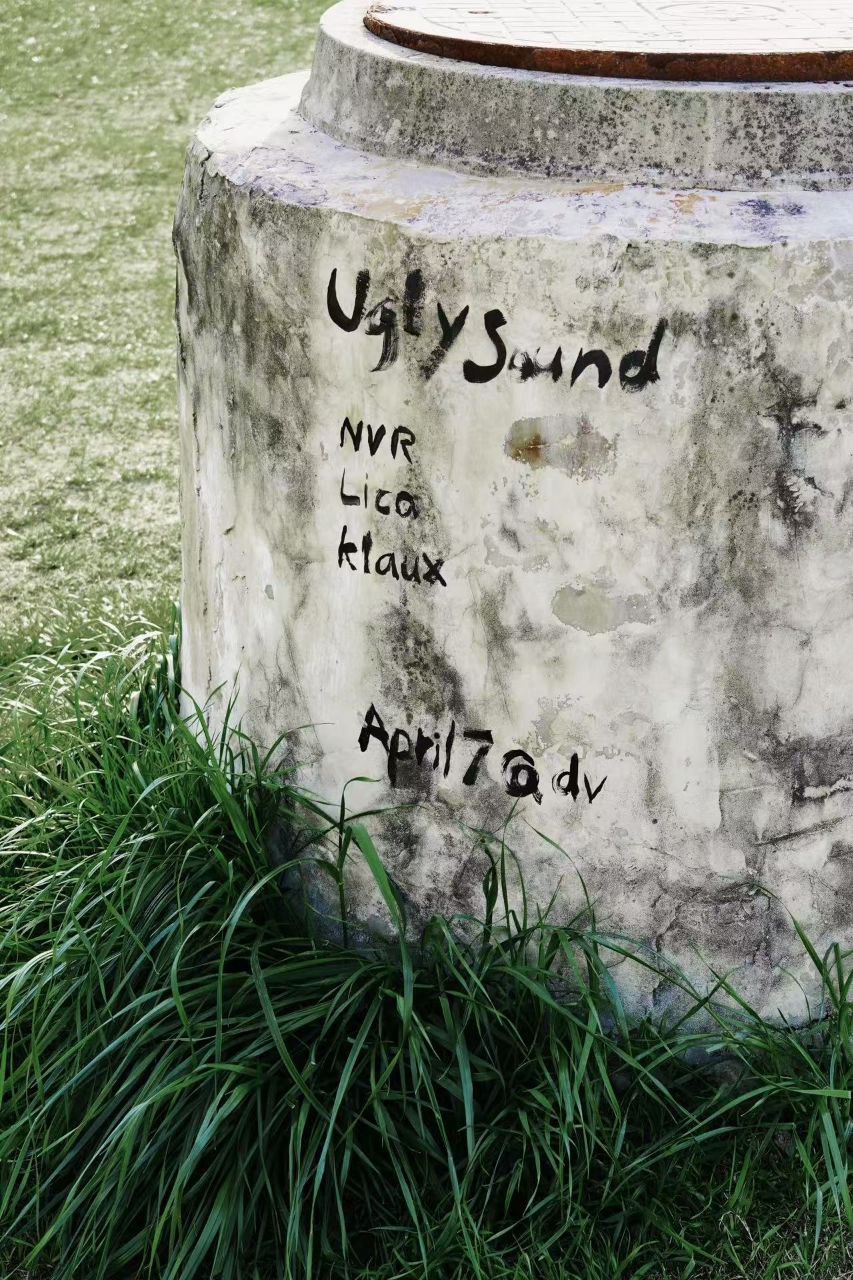 Ugly Sound
NVR
Lica
klaux
April 7 @ dv